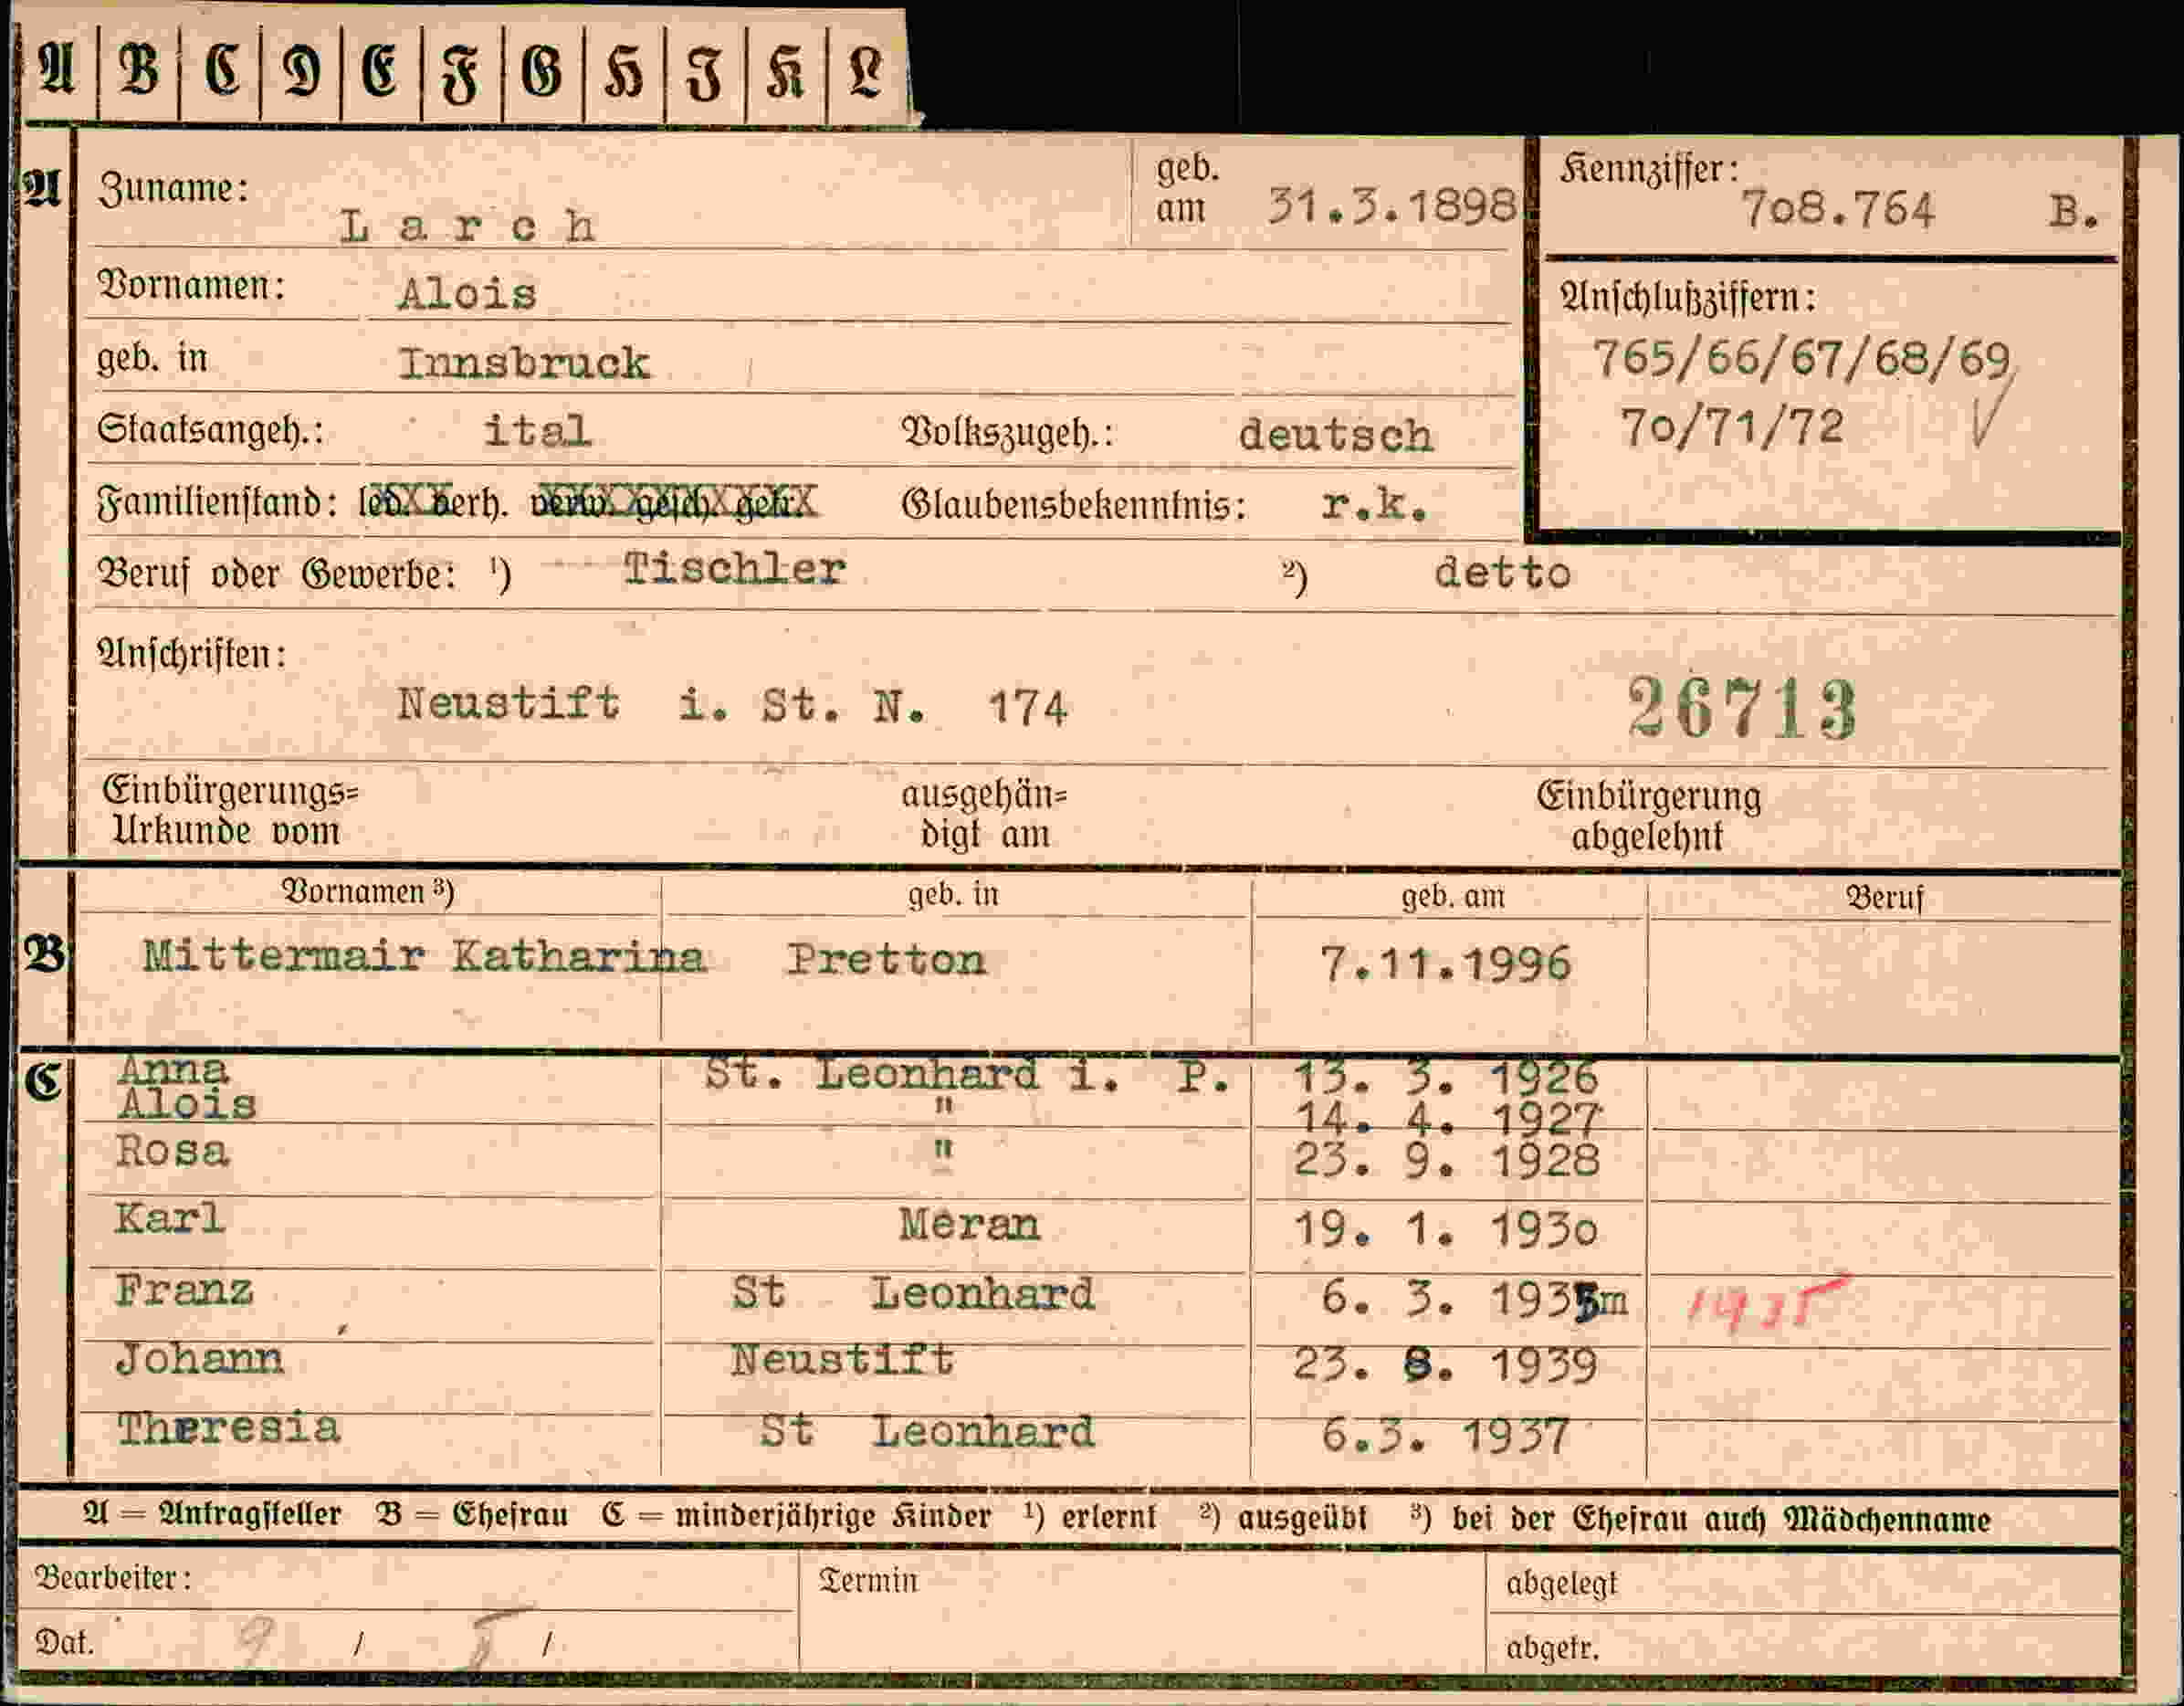 A B C D E F G H I K L
A Zuname: Larch geb. am 31.3.1898 Kennziffer: 7o8.764 B.
Vornamen: Alois Anschlußziffern:
geb. in Innsbruck 765/66/67/68/69
Staatsangeh.: ital Volkszugeh.: deutsch 7o/71/72 V
Familienstand: led. verh. verw. gesch. getr. Glaubensbekenntnis: r.k.
Beruf oder Gewerbe: ¹) Tischler ²) detto
Anschriften:
Neustift i. St. N. 174 26713
Einbürgerungs= ausgehän= Einbürgerung
Urkunde vom digt am abgelehnt
Vornamen ³) geb. in geb. am Beruf
B Mittermair Katharina Pretton 7.11.1996
C Anna St. Leonhard i. P. 13. 3. 1926
Alois " 14. 4. 1927
Rosa " 23. 9. 1928
Karl Meran 19. 1. 193o
Franz St Leonhard 6. 3. 1935m 1935
Johann Neustift 23. 8. 1939
Theresia St Leonhard 6.3. 1937
A = Antragsteller B = Ehefrau C = minderjährige Kinder ¹) erlernt ²) ausgeübt ³) bei der Ehefrau auch Mädchenname
Bearbeiter: Termin abgelegt
Dat. 9 / 5 / abgetr.